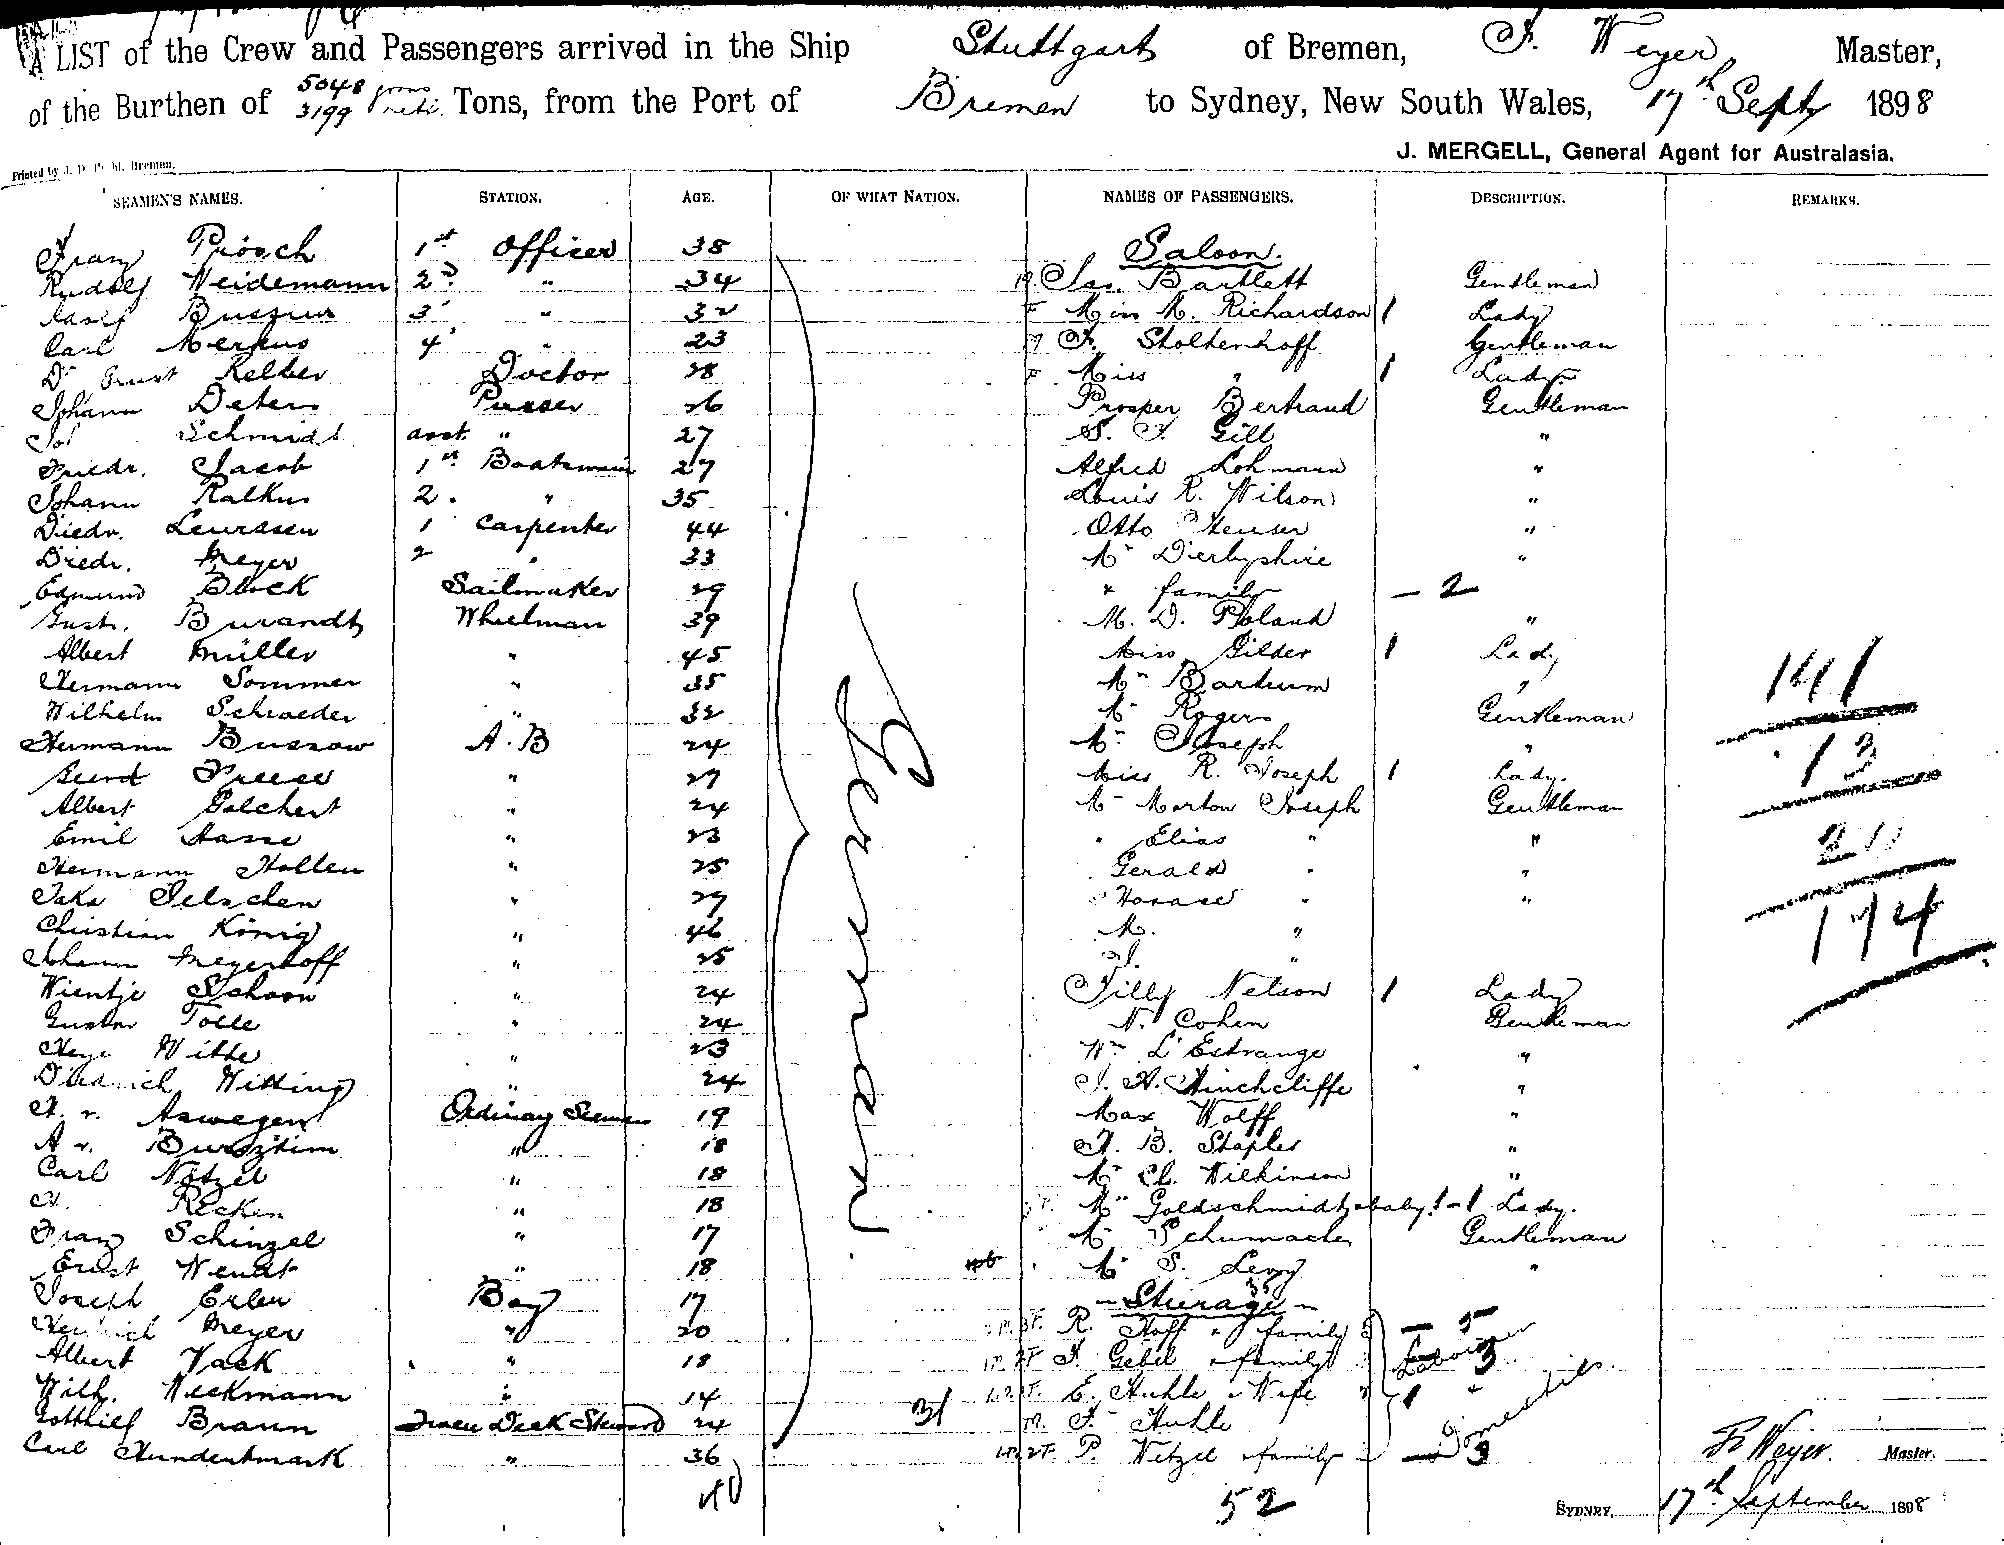 A LIST of the Crew and Passengers arrived in the Ship Stuttgart of Bremen, F. Weyer Master,
of the Burthen of 5048 gross 3199 nett. Tons, from the Port of Bremen to Sydney, New South Wales, 17th Sept 1898
J. MERGELL, General Agent for Australasia.
Printed by Bremen.
SEAMEN'S NAMES. STATION. AGE. OF WHAT NATION. NAMES OF PASSENGERS. DESCRIPTION. REMARKS.
Franz Prösch 1st Officer 38 Saloon.
Rudolf Weidemann 2d " 34 Jas. Bartlett Gentleman
3 " 32 F Miss M. Richardson 1 Lady
Carl 4 " 23 M F. Stoltenhoff Gentleman
Dr Ernst Doctor 28 F Miss " 1 Lady
Johann Deters Purser 26 Prosper Bertrand Gentleman
Schmidt asst. " 27 S. F. Gill "
Friedr. Jacob 1st Boatsman 27 Alfred Lohmann "
Johann Ralkus 2. " 35 Louis R. Wilson "
Diedr. Leurssen 1 Carpenter 44 Otto Heuser "
Diedr. Meyer 2 " 33 Mr Derbyshire "
Edmund Block Sailmaker 29 " family – 2
Gust. Burandt Wheelman 39 M. D. Poland "
Albert Müller " 45 Miss Gilder 1 Lady
Hermann Sommer " 35 Mr "
Wilhelm Schroeder " 32 Mr Rogers Gentleman
Hermann Bussow A.B 24 Mr Joseph "
Freese " 27 Miss R. Joseph 1 Lady.
Albert Golchert " 24 Mr Morton Joseph Gentleman
Emil Hasse " 23 " Elias " "
Hermann Hollen " 25 Gerald " "
Jelschen " 27 Horace " "
Christian König " 46 M. "
Johann Meyerhoff " 25 "
Wientje Schoon " 24 Tilly Nelson 1 Lady
Gustav Tolle " 24 N. Cohen Gentleman
Witte " 23 Wm L'Estrange "
Diedrich Witting " 24 J. A. Hinchcliffe "
H. v. Aswegen Ordinary Seamen 19 Max Wolff "
A v. " 18 F. B. Staples "
Carl Nötzel " 18 Mr Ch. Wilkinson "
H. Recken " 18 Mrs Goldschmidt & baby 1 – 1 Lady.
Franz Schinzel " 17 Mr Schumacher Gentleman
Ernst Wendt " 18 Mr S. Levy "
Joseph Erben Boy 17 – Steerage –
Heinrich Meyer " 20 R. Hoff & family – 5
Albert Vack " 18 F. Gebel & family Labourer 3
Wilh. Weckmann " 14 E. Huhle & Wife 1 "
Gotthilf Braun Tween Deck Steward 24 M. F. Huhle Domestic
Carl Hundertmark " 36 P. Wetzel & family – 3
40 31 52
German
141
13
174
F. Weyer. Master.
SYDNEY, 17th September 1898